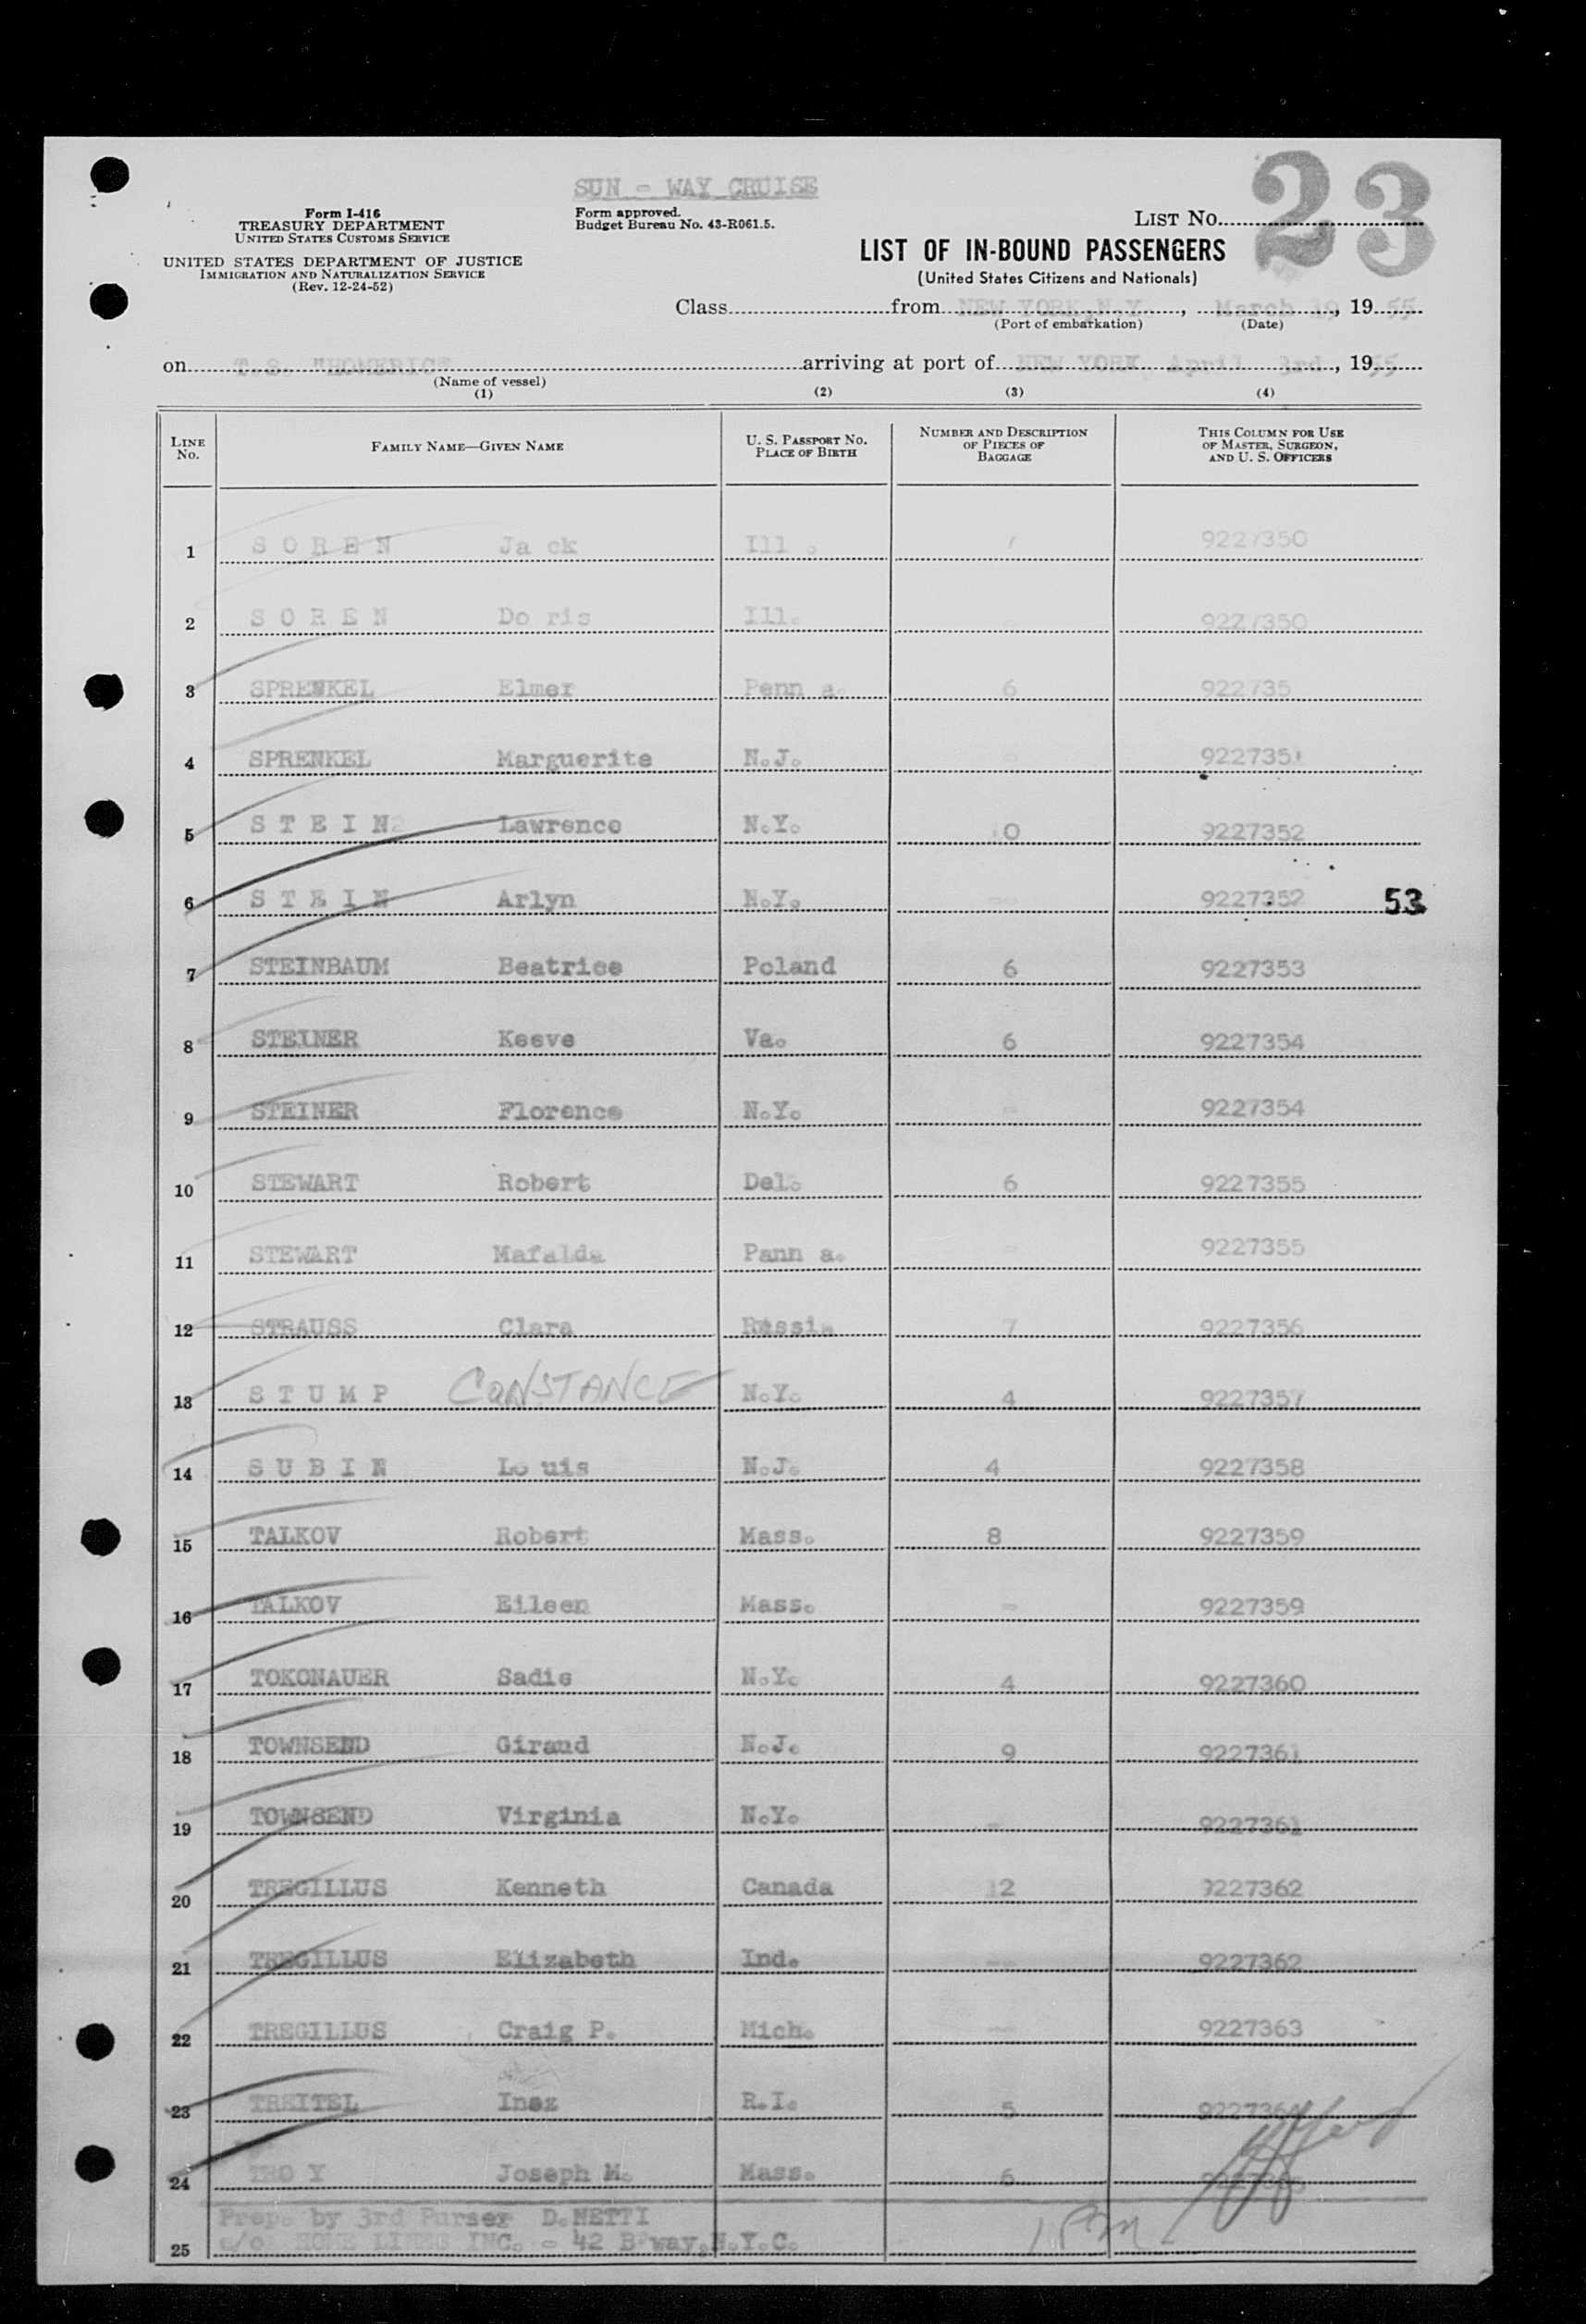 SUN - WAY CRUISE
23
Form I-416
TREASURY DEPARTMENT
UNITED STATES CUSTOMS SERVICE
UNITED STATES DEPARTMENT OF JUSTICE
IMMIGRATION AND NATURALIZATION SERVICE
(Rev. 12-24-52)
Form approved.
Budget Bureau No. 43-R061.5.
LIST NO.
LIST OF IN-BOUND PASSENGERS
(United States Citizens and Nationals)
Class from NEW YORK, N.Y., March 19, 1955
(Port of embarkation) (Date)
on T.S. "HOMERIC" arriving at port of NEW YORK, April 3rd, 1955
(Name of vessel)
(1) (2) (3) (4)
LINE NO. FAMILY NAME—GIVEN NAME U. S. PASSPORT NO. PLACE OF BIRTH NUMBER AND DESCRIPTION OF PIECES OF BAGGAGE THIS COLUMN FOR USE OF MASTER, SURGEON, AND U. S. OFFICERS
1 S O R E N Ja ck Ill . 9227350
2 S O R E N Do ris Ill. 9227350
3 SPRENKEL Elmer Penn a. 6 922735
4 SPRENKEL Marguerite N.J. - 9227351
5 S T E I N Lawrence N.Y. 10 9227352
6 S T E I N Arlyn N.Y. -- 9227352 53
7 STEINBAUM Beatrice Poland 6 9227353
8 STEINER Keeve Va. 6 9227354
9 STEINER Florence N.Y. - 9227354
10 STEWART Robert Del. 6 9227355
11 STEWART Mafalda Pann a. - 9227355
12 STRAUSS Clara Russia 7 9227356
13 S T U M P CONSTANCE N.Y. 4 9227357
14 S U B I N Lo uis N.J. 4 9227358
15 TALKOV Robert Mass. 8 9227359
16 TALKOV Eileen Mass. - 9227359
17 TOKONAUER Sadie N.Y. 4 9227360
18 TOWNSEND Giraud N.J. 9 9227361
19 TOWNSEND Virginia N.Y. - 9227361
20 TREGILLUS Kenneth Canada 12 9227362
21 TREGILLUS Elizabeth Ind. -- 9227362
22 TREGILLUS Craig P. Mich. -- 9227363
23 TREITEL Inez R.I. 5 9227364
24 TRO Y Joseph M. Mass. 6
Prep. by 3rd Purser D.NETTI
25 c/o HOME LINES INC. - 42 B'way,N.Y.C. 1 PM